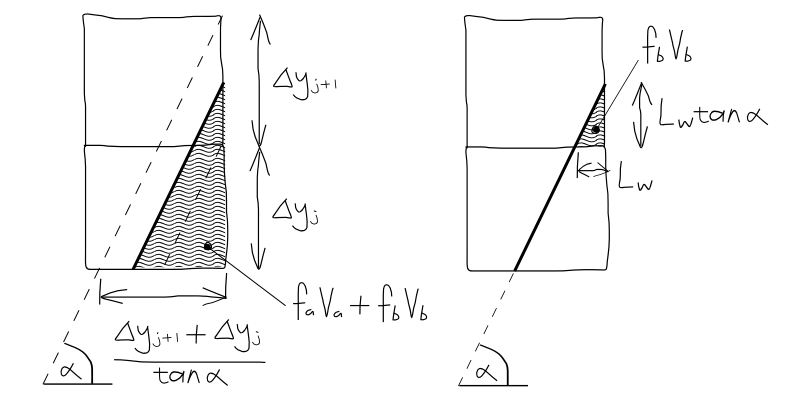 Δyj+1
Δyj
faVa + fbVb
Δyj+1 + Δyj
tanα
α
fbVb
Lwtanα
Lw
α